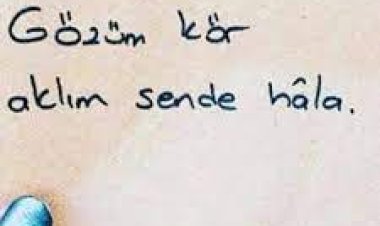 Gözüm kör
aklım sende hâla.